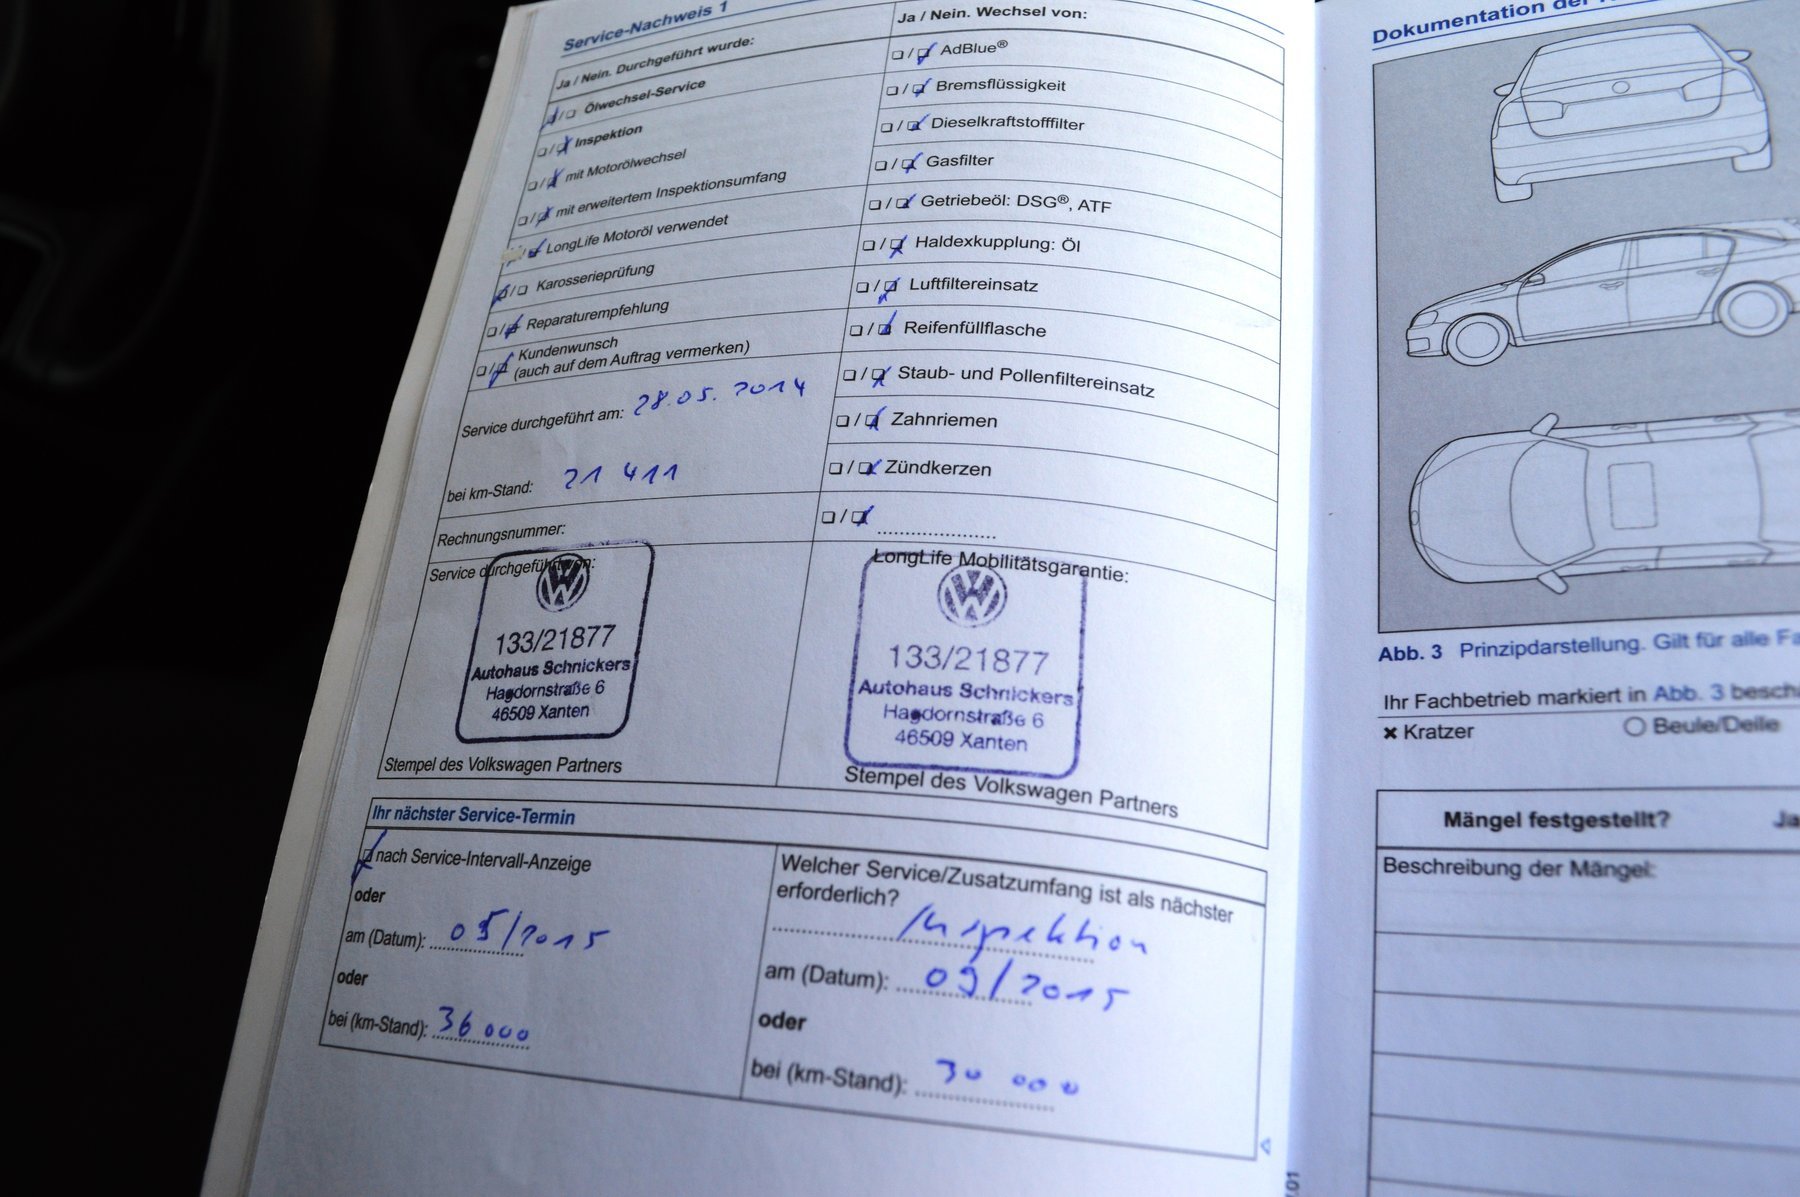 Service-Nachweis 1
Ja / Nein. Durchgeführt wurde:
Ölwechsel-Service
Inspektion
mit Motorölwechsel
mit erweitertem Inspektionsumfang
LongLife Motoröl verwendet
Karosserieprüfung
Reparaturempfehlung
Kundenwunsch
(auch auf dem Auftrag vermerken)
Service durchgeführt am: 28.05.2014
bei km-Stand: 21 411
Rechnungsnummer:
Service durchgeführt von:
133/21877
Autohaus Schnickers
Hagdornstraße 6
46509 Xanten
Stempel des Volkswagen Partners
Ja / Nein. Wechsel von:
AdBlue®
Bremsflüssigkeit
Dieselkraftstofffilter
Gasfilter
Getriebeöl: DSG®, ATF
Haldexkupplung: Öl
Luftfiltereinsatz
Reifenfüllflasche
Staub- und Pollenfiltereinsatz
Zahnriemen
Zündkerzen
LongLife Mobilitätsgarantie:
133/21877
Autohaus Schnickers
Hagdornstraße 6
46509 Xanten
Stempel des Volkswagen Partners
Ihr nächster Service-Termin
nach Service-Intervall-Anzeige
oder
am (Datum): 05/2015
oder
bei (km-Stand): 36 000
Welcher Service/Zusatzumfang ist als nächster
erforderlich?
Inspektion
am (Datum): 09/2015
oder
bei (km-Stand): 30 000
Dokumentation der
Abb. 3 Prinzipdarstellung. Gilt für alle
Ihr Fachbetrieb markiert in Abb. 3
Kratzer
Beule/Delle
Mängel festgestellt?
Beschreibung der Mängel: